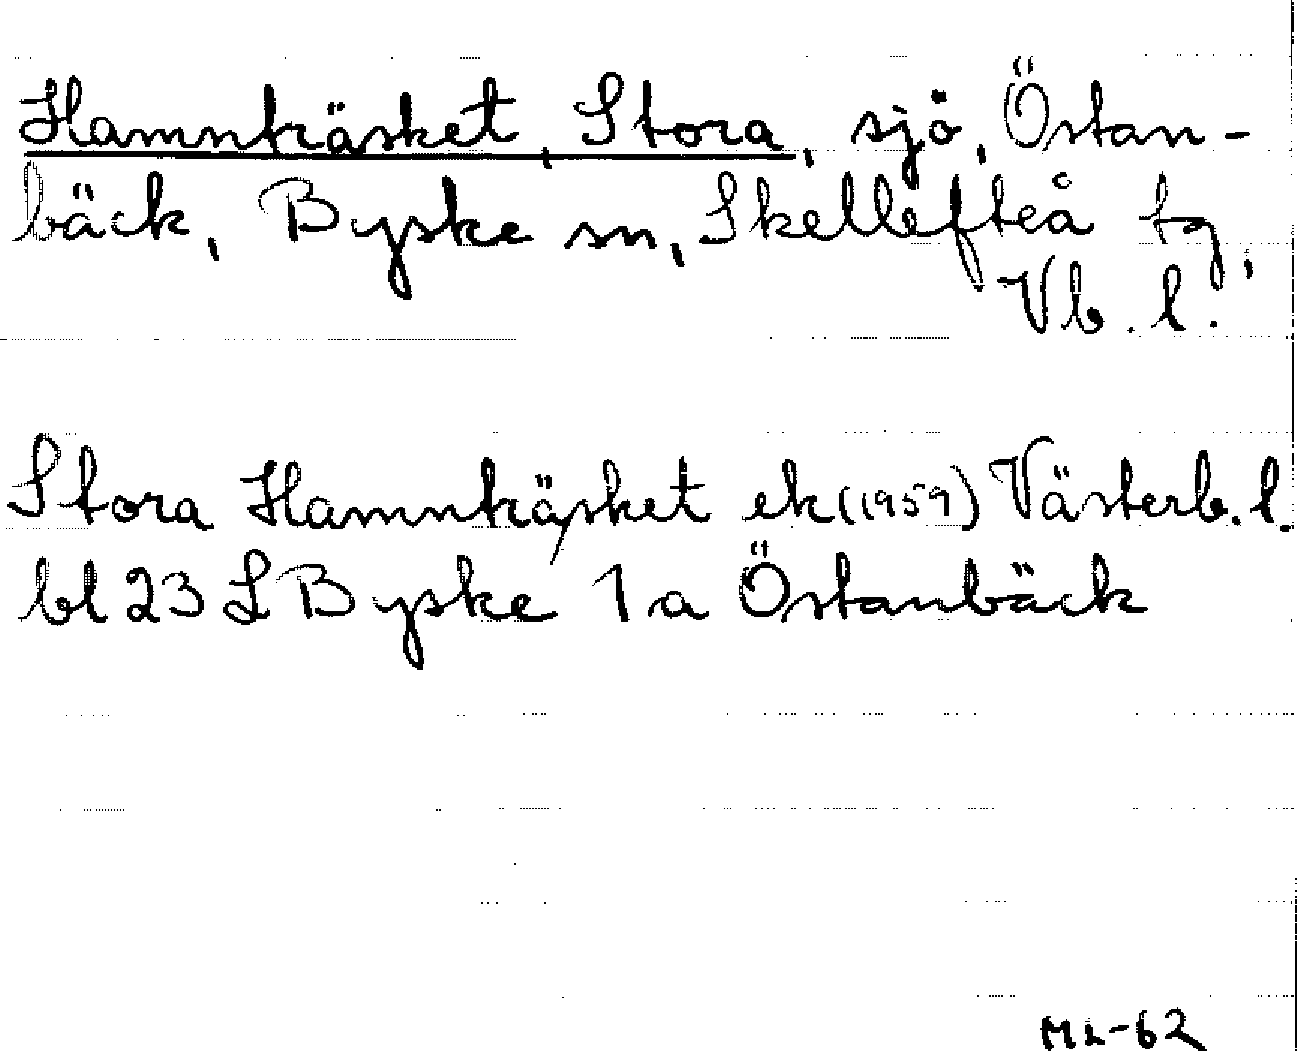 Hamnträsket, Stora, sjö, Östan-
bäck, Byske sn, Skellefteå tg,
Vb. l.
Stora Hamnträsket ek (1959) Västerb. l.
bl 23 L Byske 1a Östanbäck
ML-62